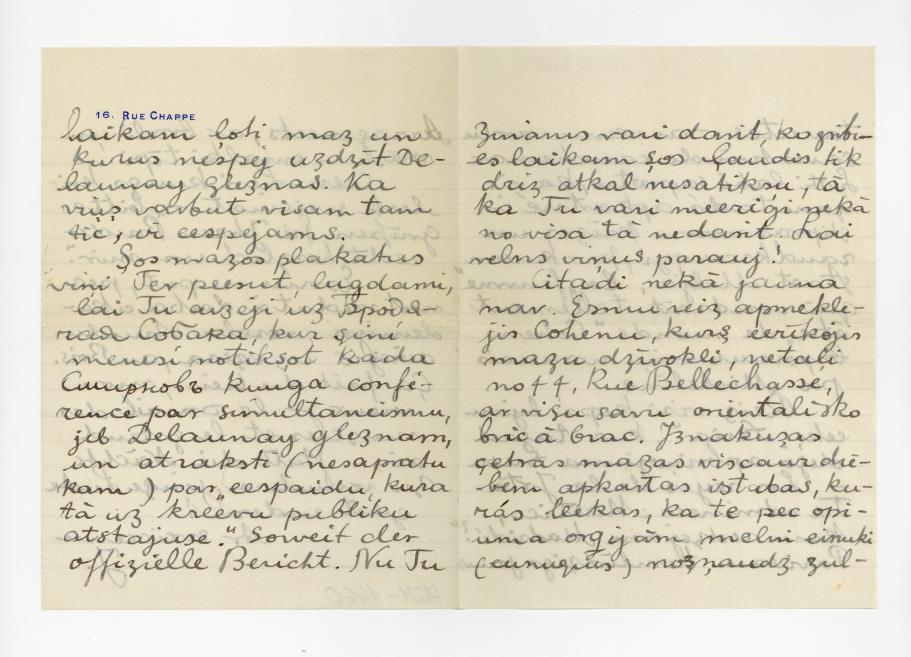 16. RUE CHAPPE
laikam ļoti maz un
kurus nespēj uzdzīt De-
launay gleznas. Ka
viņš varbūt visam tam
tic, ir eespējams.
Šos mazos plakātus
viņi Tev peesut, lugdami,
lai Tu aizeji uz Бродя-
чая Собака, kur šinī
menesī notikšot kāda
Смирновъ kunga confé-
rence par simultaneismu,
jeb Delaunay gleznam,
un atrakstī (nesapratu
kam) par „eespaidu, kura
tā uz kreevu publiku
atstajuse.“ Soweit der
offizielle Bericht. Nu Tu
Zinams vari darīt, ko gribi-
es laikam šos ļaudis tik
drīz atkal nesatikšu, tā
ka Tu vari meerīgi nekā
no visa tā nedarīt. Lai
velns viņus parauj!
Citādi nekā jauna
nav. Esmu reiz apmeklē-
jis Cohēnu, kurš eerīkojis
mazu dzīvokli, netāļi
no 44, Rue Bellechasse,
ar visu savu orientālisko
bric à brac. Iznākušas
četras mazas viscaur drē-
bēm apkārtas istabas, ku-
rās leekas, ka te pec opi-
uma orģijām melni einuki
(eunuqius) nožņaudz zul-